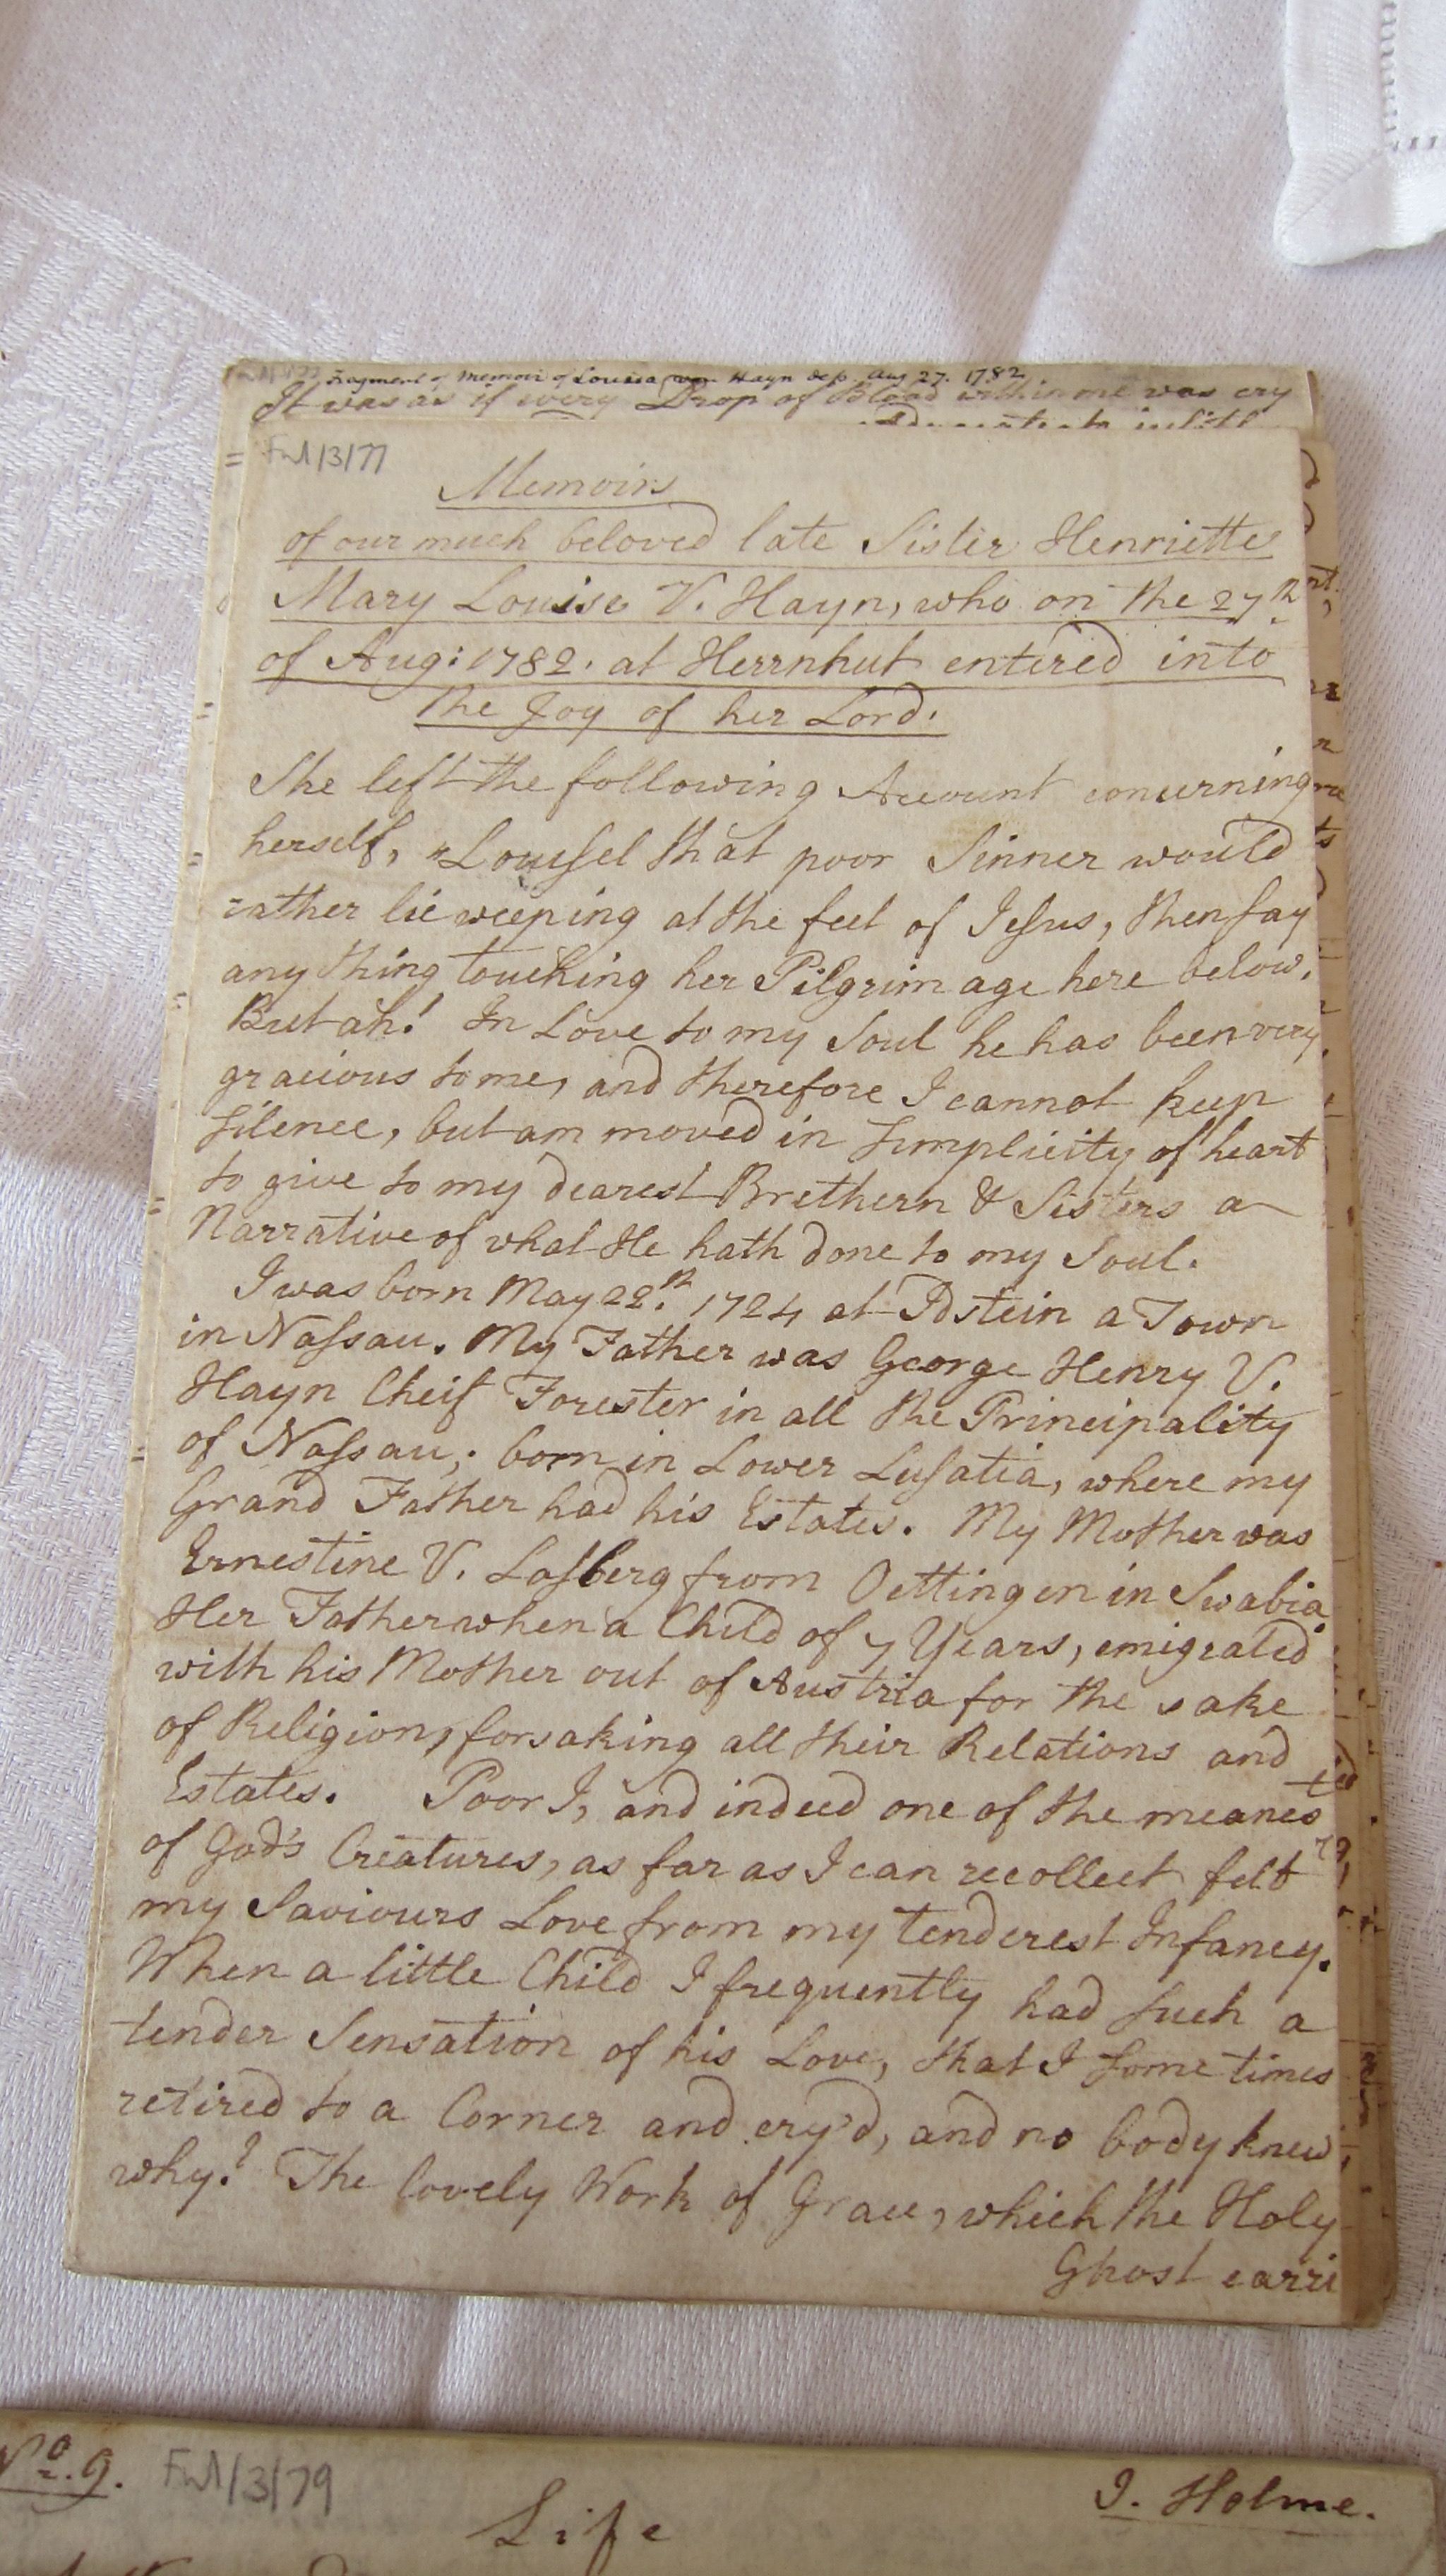 Fragment of Memoir of Louisa von Hayn dep. Aug 27. 1782
It was as if every Drop of Blood within me was cry
Ful/3/77
Memoirs
of our much beloved late Sister Henriette
Mary Louise V. Hayn, who on the 27th
of Aug: 1782. at Herrnhut entered into
the Joy of her Lord.
She left the following Account concerning
herself, "Louisel that poor Sinner would
rather lie weeping at the feet of Jesus, then say
any thing touching her Pilgrim age here below.
But ah! In Love to my Soul he has been very
gracious to me, and therefore I cannot keep
Silence, but am moved in Simplicity of heart
to give to my dearest Brethern & Sisters a
Narrative of what He hath done to my Soul.
I was born May 22th. 1724 at Idstein a Town
in Nassau. My Father was George Henry V.
Hayn Cheif Forester in all the Principality
of Nassau; born in Lower Lusatia, where my
Grand Father had his Estates. My Mother was
Ernestine V. Lasberg from Oettingen in Swabia
Her Father when a Child of 7 Years, emigrated
with his Mother out of Austria for the sake
of Religion, forsaking all their Relations and
Estates. Poor I, and indeed one of the meanest
of God's Creatures, as far as I can recollect felt
my Saviours Love from my tenderest Infancy.
When a little Child I frequently had such a
tender Sensation of his Love, that I some times
retired to a Corner and cry'd, and no body knew
why? The lovely Work of Grace, which the Holy
Ghost carri
No. 9. Ful/3/79
J. Holme.
Life